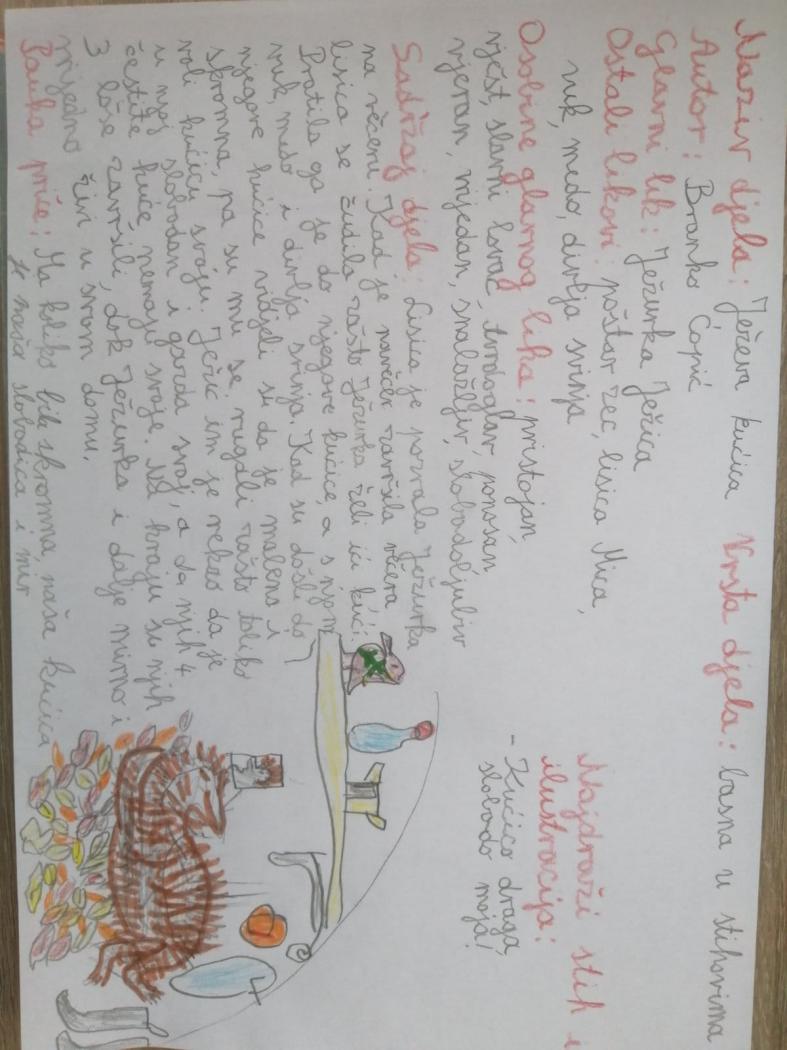 Naziv djela: Ježeva kućica Vrsta djela: basna u stihovima
Autor: Branko Ćopić
Glavni lik: Ježurka Ježica
Ostali likovi: poštar zec, lisica Mica,
vuk, medo, divlja svinja
Osobine glavnog lika: pristojan,
vješt, slavni lovac, tvrdoglav, ponosan,
vjeran, vrijedan, snalažljiv, slobodoljubiv
Sadržaj djela: Lisica je pozvala Ježurka
na večeru. Kad je navečer završila večera
lisica se čudila zašto Ježurka želi ići kući.
Pratila ga je do njegove kućice, a s njom
vuk, medo i divlja svinja. Kad su došli do
njegove kućice vidjeli su da je malena i
skromna, pa su mu se rugali zašto toliko
voli kućicu svoju. Ježić im je rekao da je
u njoj slobodan i gazda svoj, a da njih 4
čestite kuće nemaju svoje. Na kraju su njih
3 loše završili, dok Ježurka i dalje mirno i
vrijedno živi u svom domu.
Pouka priče: Ma koliko bila skromna, naša kućica
je naša slobodica i mir
Najdraži stih i
ilustracija:
- Kućico draga,
slobodo moja!